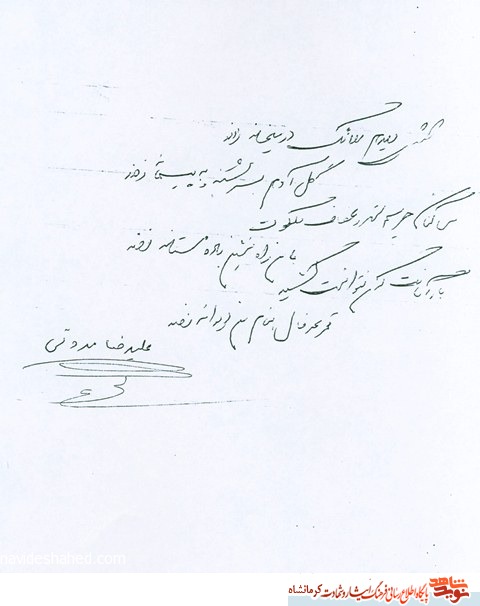 دوش دیدم ملائک در میخانه زدند
گل آدم بسرشتند و به پیمانه زدند
ساکنان حرم ستر و عفاف ملکوت
با من راه نشین باده مستانه زدند
بار امانت نتوانست کشید
قرعه فال بنام من دیوانه زدند
علیرضا مدوقی
navideshahed.com
نوید شاهد
پایگاه اطلاع رسانی فرهنگ ایثار و شهادت کرمانشاه